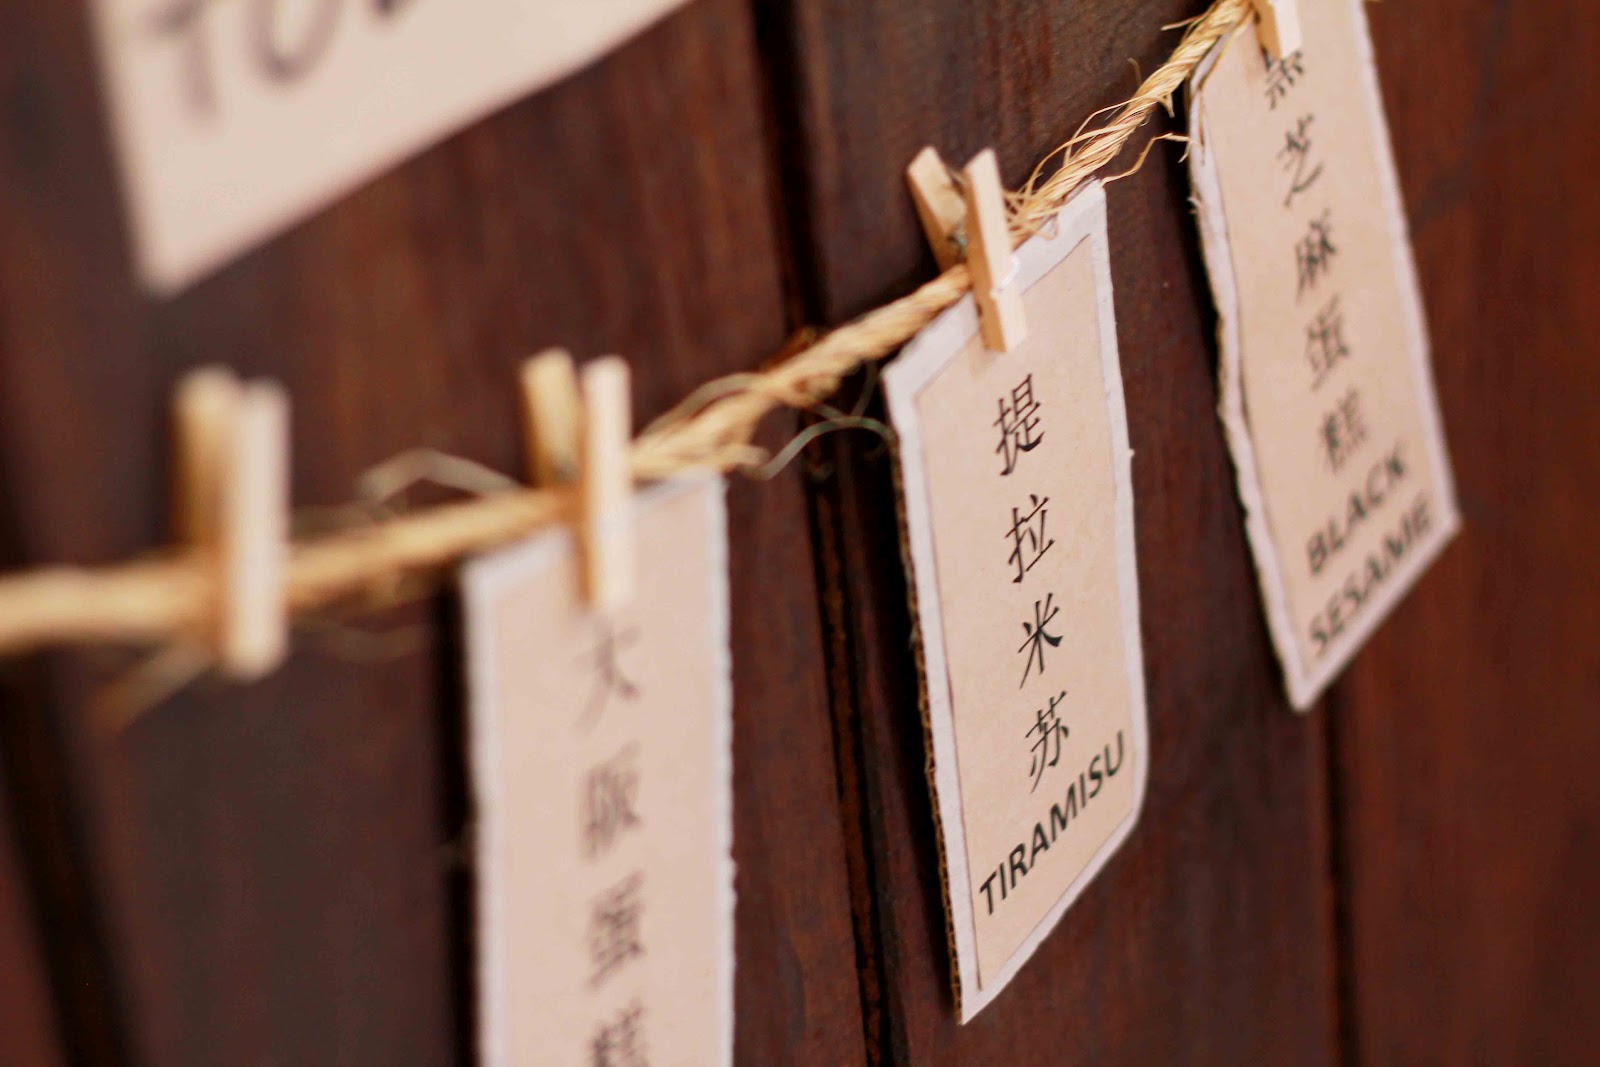 大阪蛋糕
提拉米苏
TIRAMISU
黑芝麻蛋糕
BLACK
SESAME